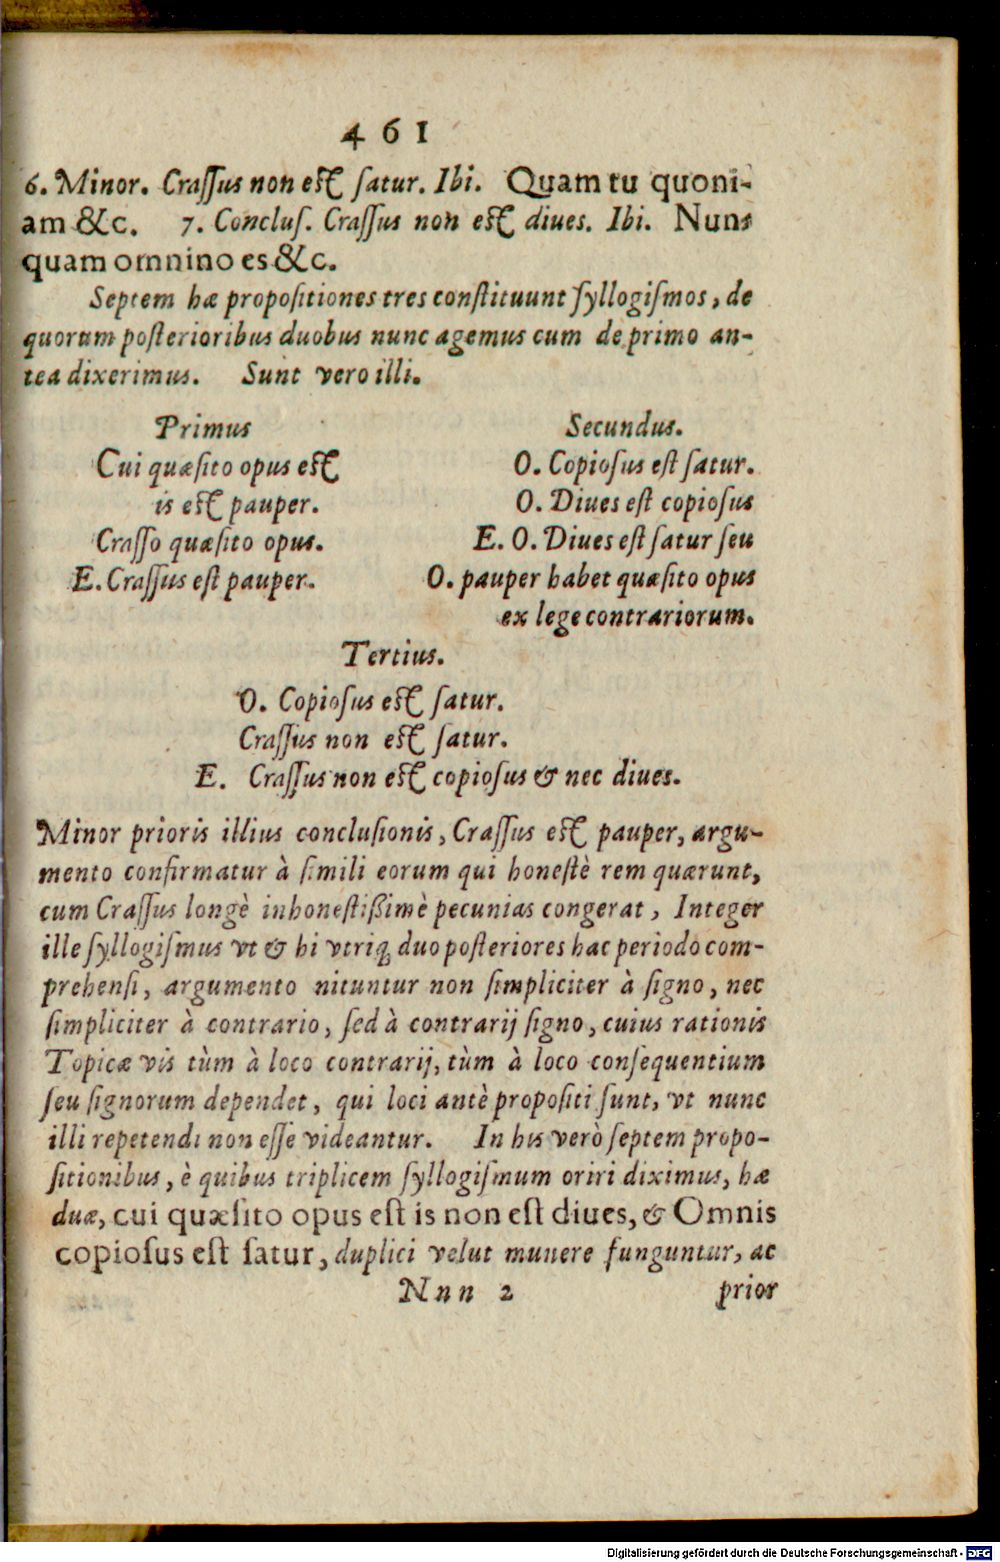 461
6. Minor. Craſſus non eſt ſatur. Ibi. Quam tu quoni-
am &c. 7. Concluſ. Craſſus non eſt diues. Ibi. Nun-
quam omnino es &c.
Septem hæ propoſitiones tres conſtituunt ſyllogiſmos, de
quorum poſterioribus duobus nunc agemus cum de primo an-
tea dixerimus. Sunt vero illi.
Primus
Cui quæſito opus eſt
is eſt pauper.
Craſſo quæſito opus.
E. Craſſus eſt pauper.
Secundus.
O. Copioſus eſt ſatur.
O. Diues eſt copioſus
E. O. Diues eſt ſatur ſeu
O. pauper habet quæſito opus
ex lege contrariorum.
Tertius.
O. Copioſus eſt ſatur.
Craſſus non eſt ſatur.
E. Craſſus non eſt copioſus & nec diues.
Minor prioris illius concluſionis, Craſſus eſt pauper, argu-
mento confirmatur à ſimili eorum qui honeſtè rem quærunt,
cum Craſſus longè inhoneſtißimè pecunias congerat, Integer
ille ſyllogiſmus vt & hi vtriq; duo poſteriores hac periodo com-
prehenſi, argumento nituntur non ſimpliciter à ſigno, nec
ſimpliciter à contrario, ſed à contrarij ſigno, cuius rationis
Topicæ vis tùm à loco contrarij, tùm à loco conſequentium
ſeu ſignorum dependet, qui loci antè propoſiti ſunt, vt nunc
illi repetendi non eſſe videantur. In his verò ſeptem propo-
ſitionibus, è quibus triplicem ſyllogiſmum oriri diximus, hæ
duæ, cui quæſito opus eſt is non eſt diues, & Omnis
copioſus eſt ſatur, duplici velut munere funguntur, ac
Nnn 2 prior
Digitalisierung gefördert durch die Deutsche Forschungsgemeinschaft - DFG